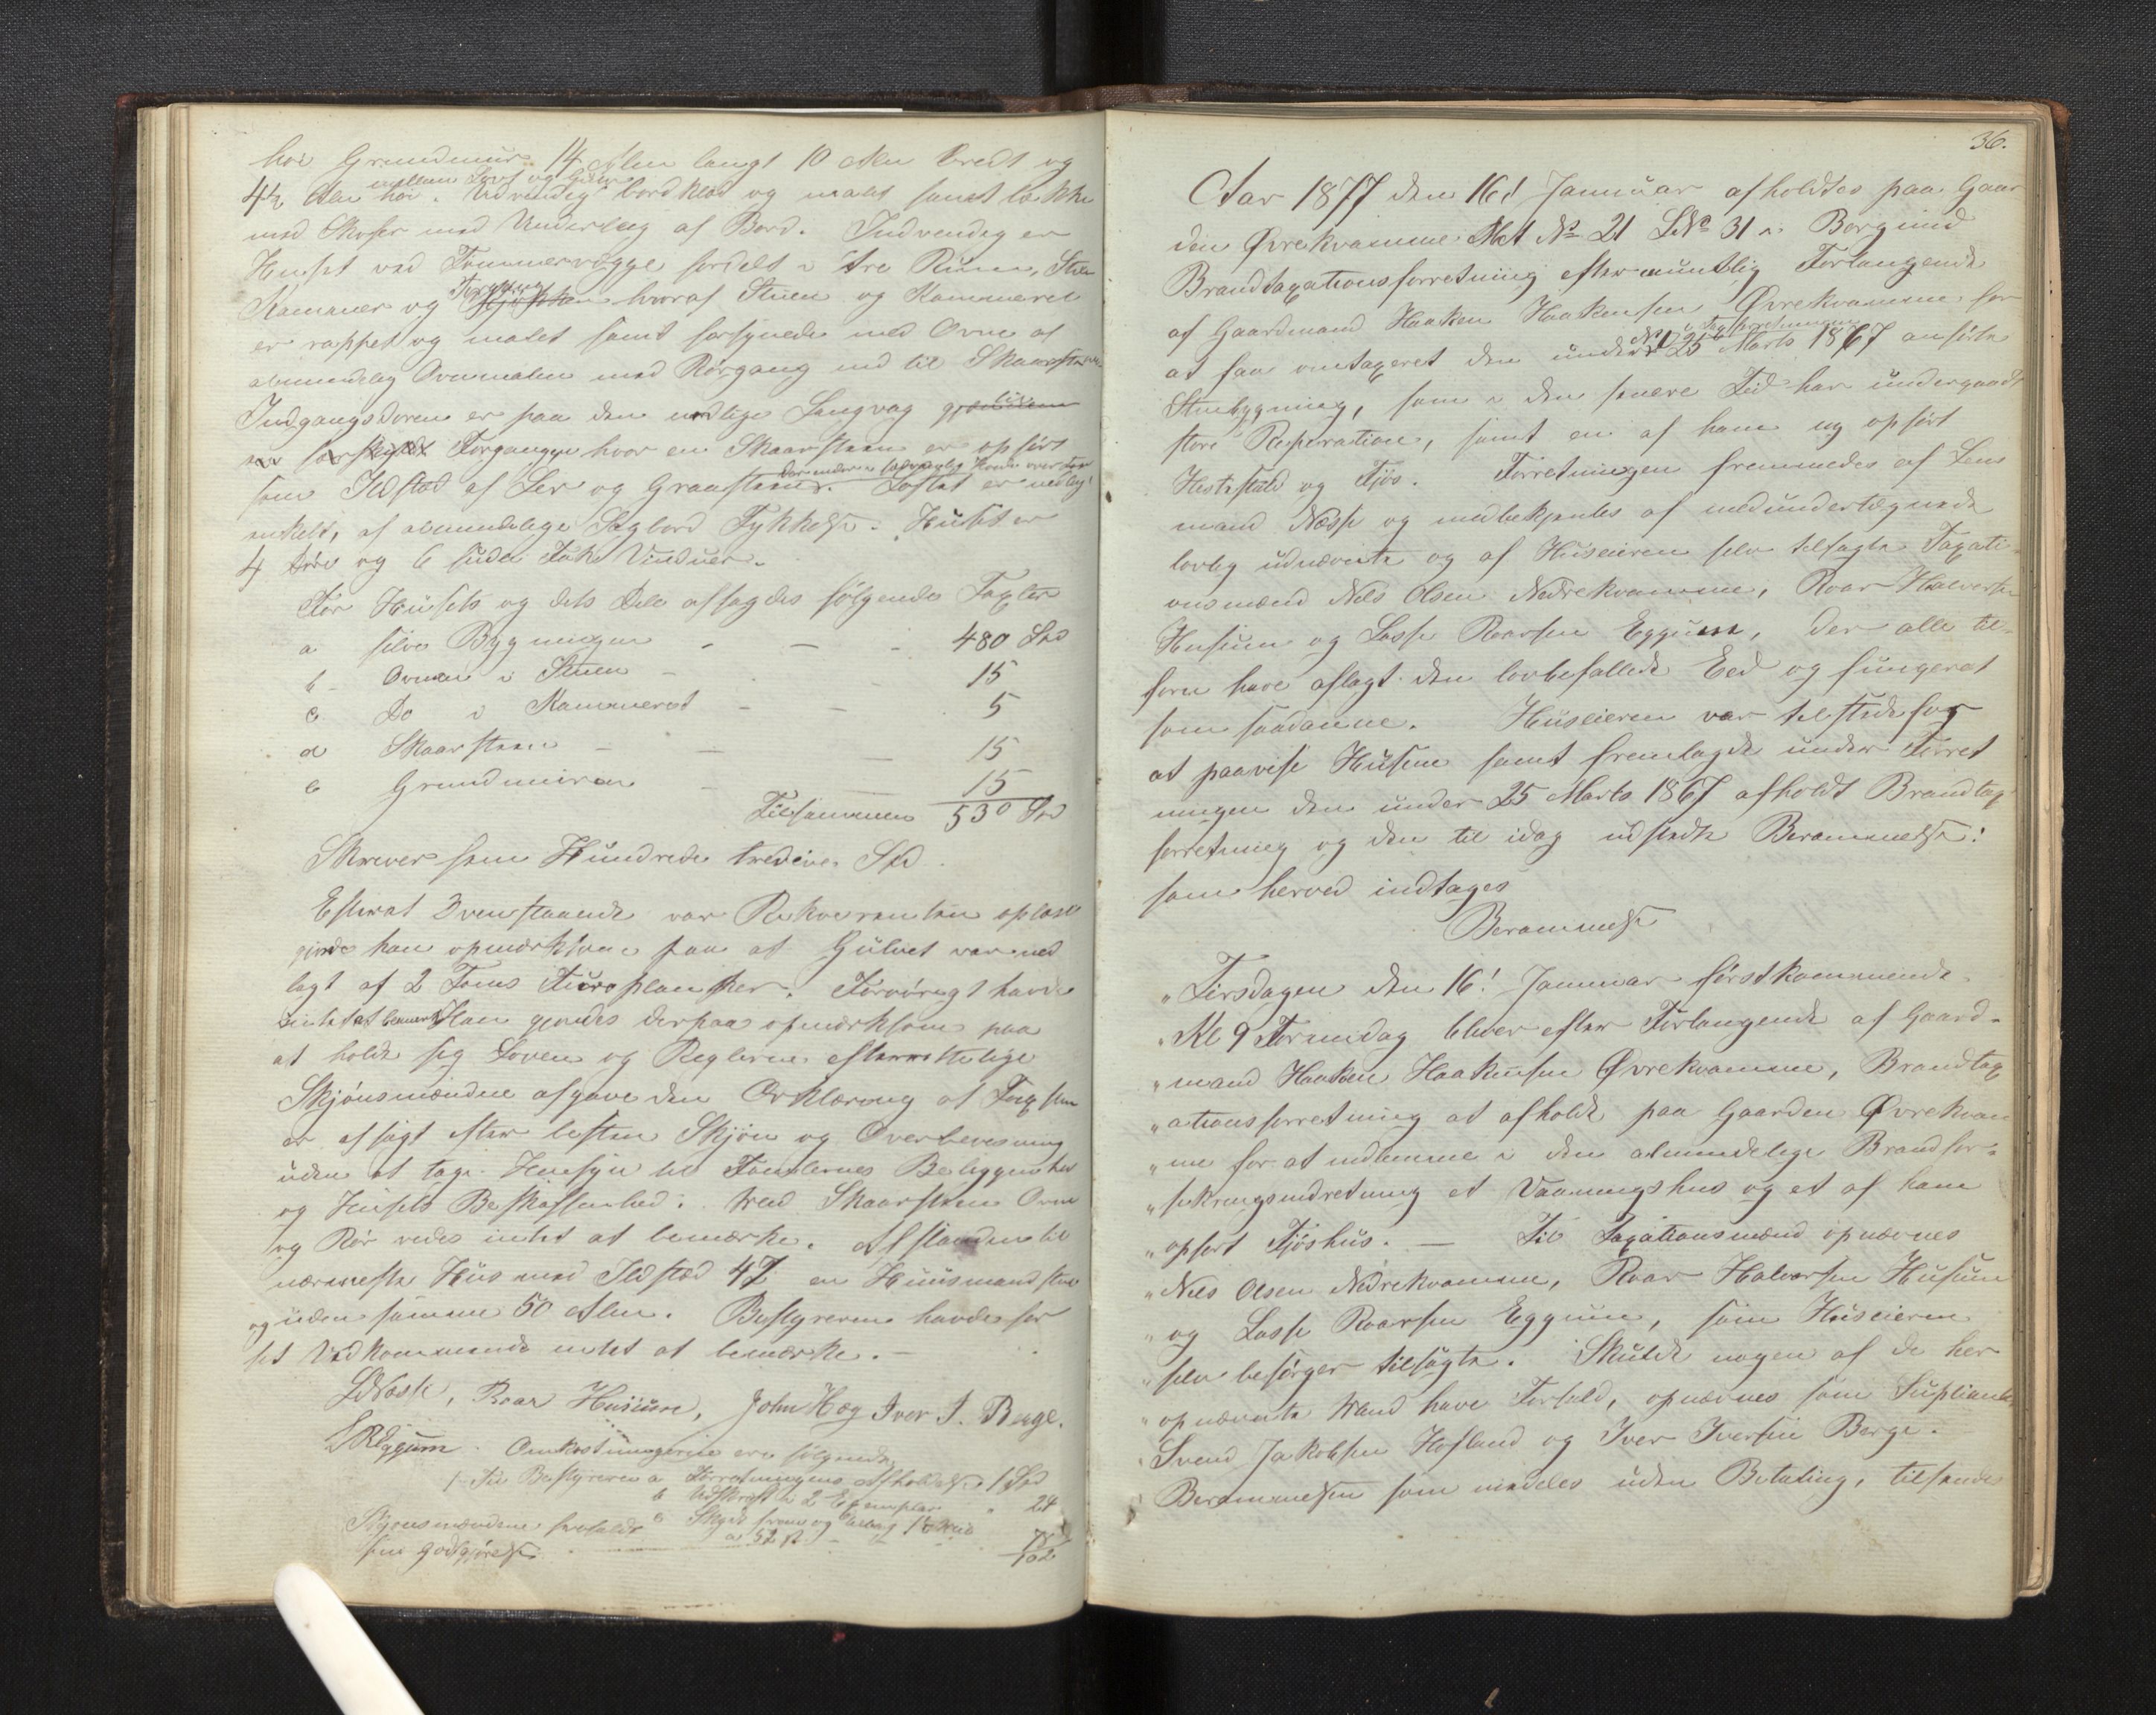 høi Grundmur 14 Alen langt 10 Alen bredt og
mellem Loft og Gulv
4½ Alen høi. Udvendig bordklæd og malet samt tække
med Skifer med Underlag af Bord. Indvendig er
Huset ved Tømmervægge fordelt i tre Rum, Stue
Kammer og Forgang hvoraf Stuen og Kammeret
er rappet og malet samt forsynede med Ovne af
almindelig Ovnmalm med Rørgang ind til Skaarsten
Indgangsdøren er paa den nordlige Langvæg
Forgangen hvor en Skaarsteen er opført
som Ildsted af Ler og Graasteen. Loftet er nedlagt
enkelt, af almindelige Sagbord Tykkelse. I Huset er
4 Døre og 6 sex Ruders Vinduer.
For Husets og dets Dele afsagdes følgende Taxter
a selve Bygningen - - - 480 Spd
b - Ovnen i Stuen - - 15
c Do i Kammeret - - 5
d Skaarsteen - - 15
e Grundmuren - - 15
Tilsammen 530 Spd
Skriver fem Hundrede tredive Spd.
Efterat Ovenstaaende var Rekvirenten oplæst
gjorde han opmærksom paa at Gulvet var ned
lagt af 2 Toms Furoplanker. Forøvrigt havde
intet at bemærke Han gjordes derpaa opmærksom paa
at holde sig Loven og Reglerne efterrettelige
Skjønsmændene afgave den Erklæring at Taxten
er afsagt efter bedste Skjøn og Overbevisning
uden at tage Hensyn til Tomternes Beliggenhed
og Husets Beskaffenhed. Ved Skaarsteen Ovne
og Rør vides intet at bemærke. Afstanden til
nærmeste Huus med Ildsted 47 en Huusmandsstue
og uden samme 50 Alen. Bestyreren havde for
sit Vedkommende intet at bemærke. -
L Næsse, Roar Husum, John Hæg Iver I. Berge.
L R Eggum. Omkostningerne ere følgende
1 Til Bestyreren a Forretningens Afholdelse 1 Spd
b Udskrift i 2 Exemplar " 24
Skjønsmændene frafaldt c Skyds frem og tilbage 1½ Miil
sin Godtgjørelse a 52 ß - - 78
102
36.
Aar 1877 den 16d Januar afholdtes paa Gaar
den Øvrekvamme Mat No 21 LNo 31 i Borgund
Brandtaxationsforretning efter mundtlig Forlangende
af Gaardmand Haaken Haakensen Øvrekvamme for
No 1 i Taxforretningen
at faa omtaxeret den under 25 Marts 1867 anførte
Stuebygning, som i den senere Tid har undergaaet
store Reperation, samt en af ham ny opført
Hestestald og Fjøs. Forretningen fremmedes af Lens
mand Næsse og medbekjentes af medundertegnede
lovlig udnævnte og af Huseieren selv tilsagte Taxati-
onsmænd Nils Olsen Nedrekvamme, Roar Halvorsen
Husum og Lasse Roarsen Eggum, der alle til-
forn have aflagt den lovbefallede Eed og fungeret
som saadanne. Huseieren var tilstede for
at paavise Husene samt fremlagde under Forret
ningen den under 25 Marts 1867 afholdt Brandtax
forretning og den til idag udstedte Berammelse:
som herved indtages
Berammelse
"Tirsdagen den 16! Januar førstkommende
"Kl 9 Formidag bliver efter Forlangende af Gaard-
"mand Haaken Haakensen Øvrekvamme, Brandtax
"ationsforretning at afholde paa Gaarden Øvrekvam
"me for at indlemme i den almindelige Brandfor-
"sikringsindretning et Vaaningshus og et af ham
"opført Fjøshus. — Til Taxationsmænd opnævnes
"Nils Olsen Nedrekvamme, Roar Halvorsen Husum
"og Lasse Roarsen Eggum, som Huseieren
"selv besørger tilsagte. Skulde nogen af de her
"opnævnte Mænd have Forfald, opnævnes som Suplianter
"Svend Jakobsen Hofland og Iver Iversen Berge.
"Berammelsen som meddeles uden Betaling, tilsendes